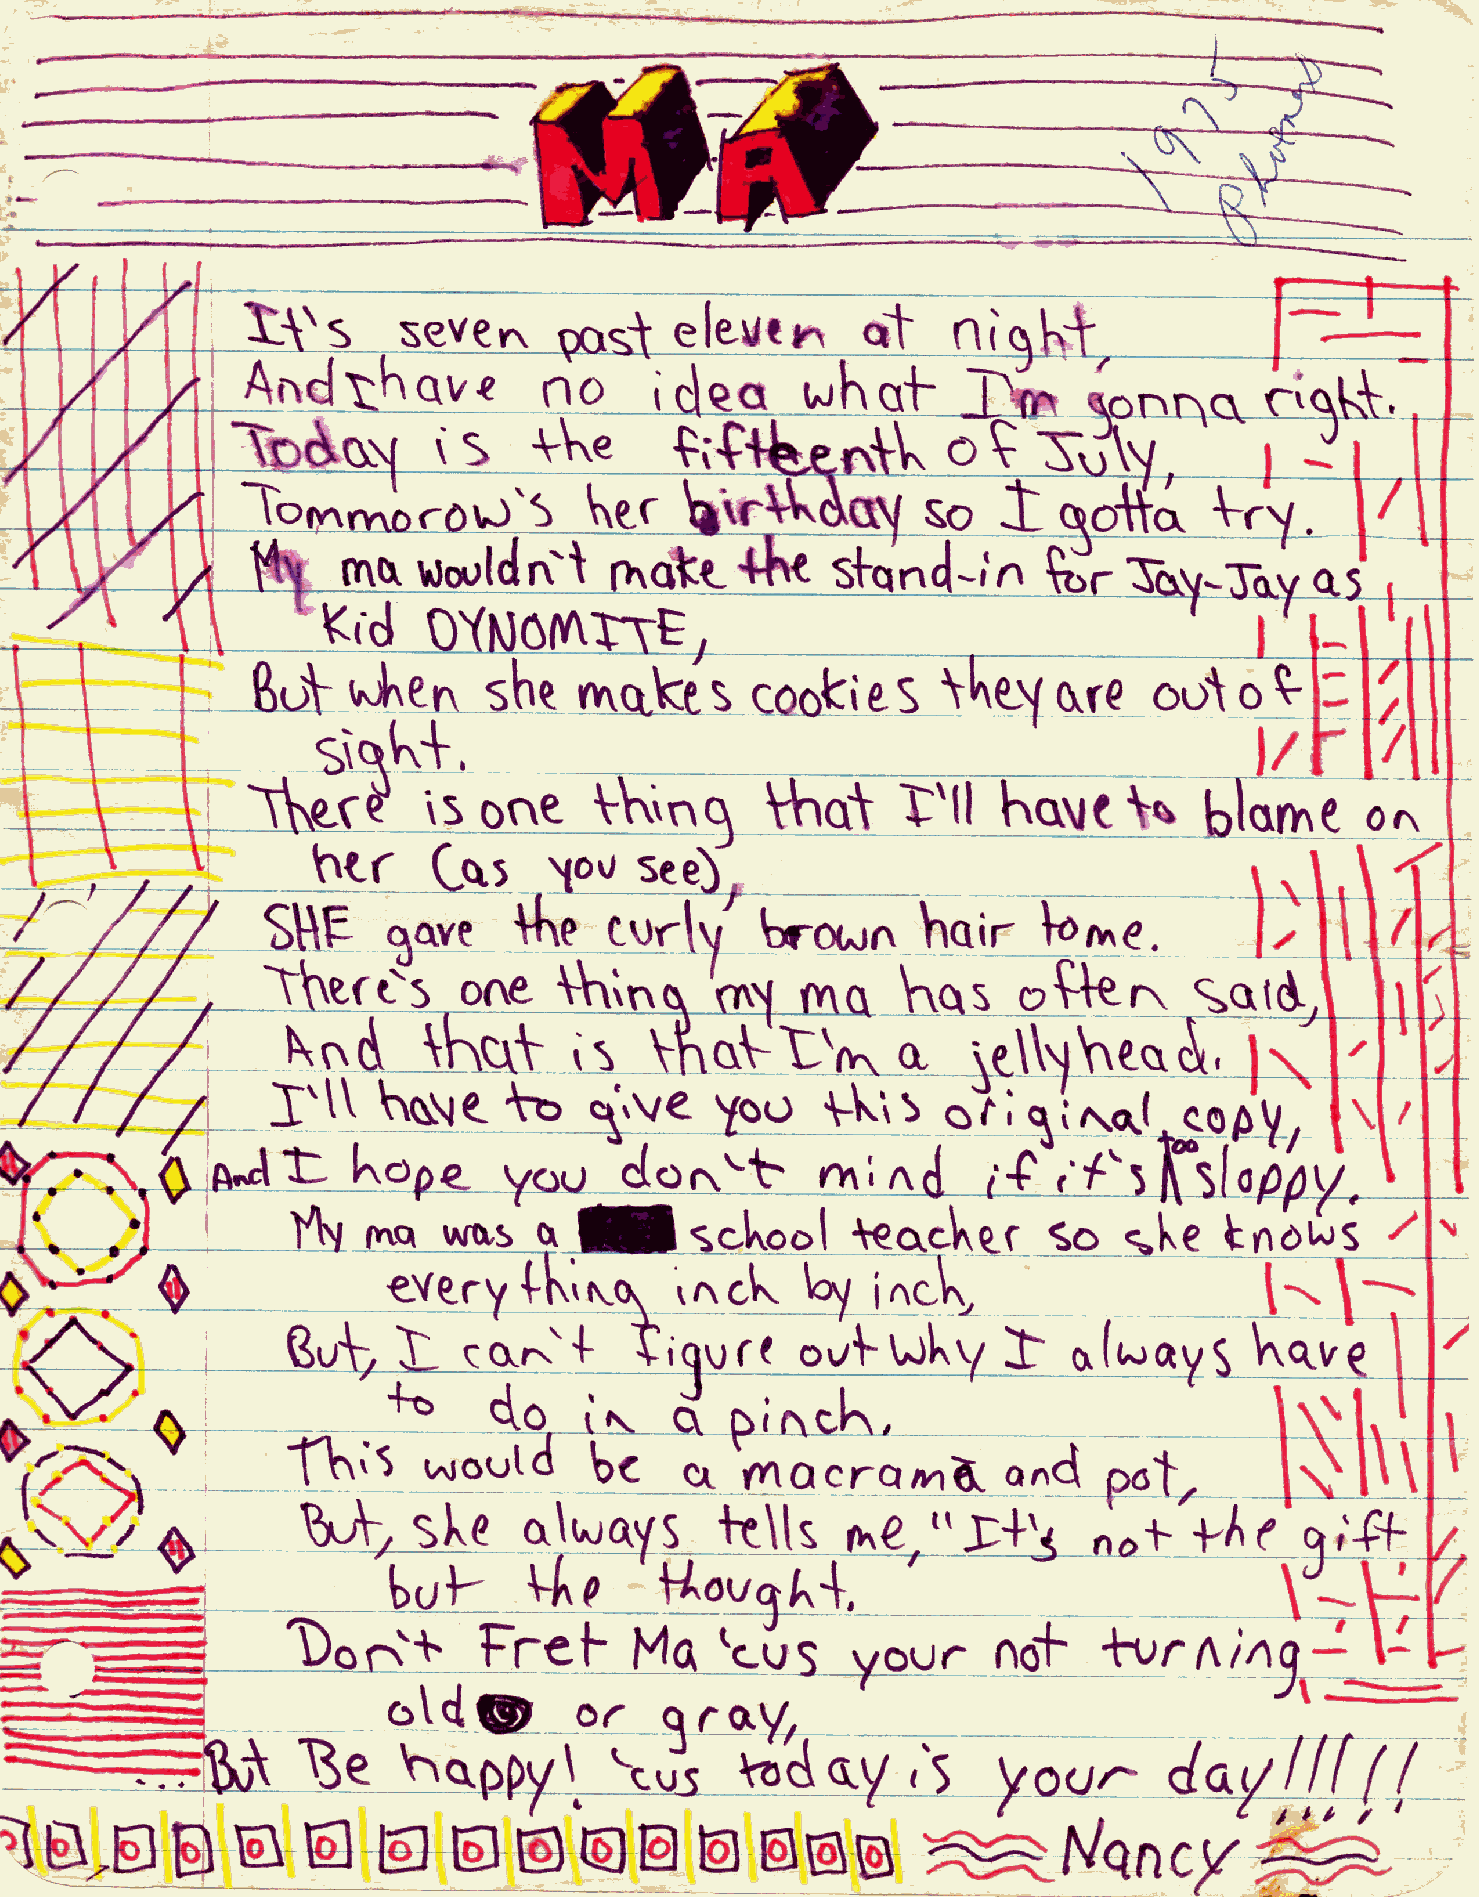 MA
1975
It's seven past eleven at night,
And I have no idea what I'm gonna right.
Today is the fifteenth of July,
Tommorow's her birthday so I gotta try.
My ma wouldn't make the stand-in for Jay-Jay as
Kid DYNOMITE,
But when she makes cookies they are out of
sight.
There is one thing that I'll have to blame on
her (as you see),
SHE gave the curly brown hair to me.
There's one thing my ma has often said,
And that is that I'm a jellyhead.
I'll have to give you this original copy,
And I hope you don't mind if it's too sloppy.
My ma was a school teacher so she knows
everything inch by inch,
But, I can't figure out why I always have
to do in a pinch.
This would be a macramā and pot,
But, she always tells me, "It's not the gift
but the thought.
Don't Fret Ma 'cus your not turning
old or gray,
...But Be happy! 'cus today is your day!!!!!
Nancy